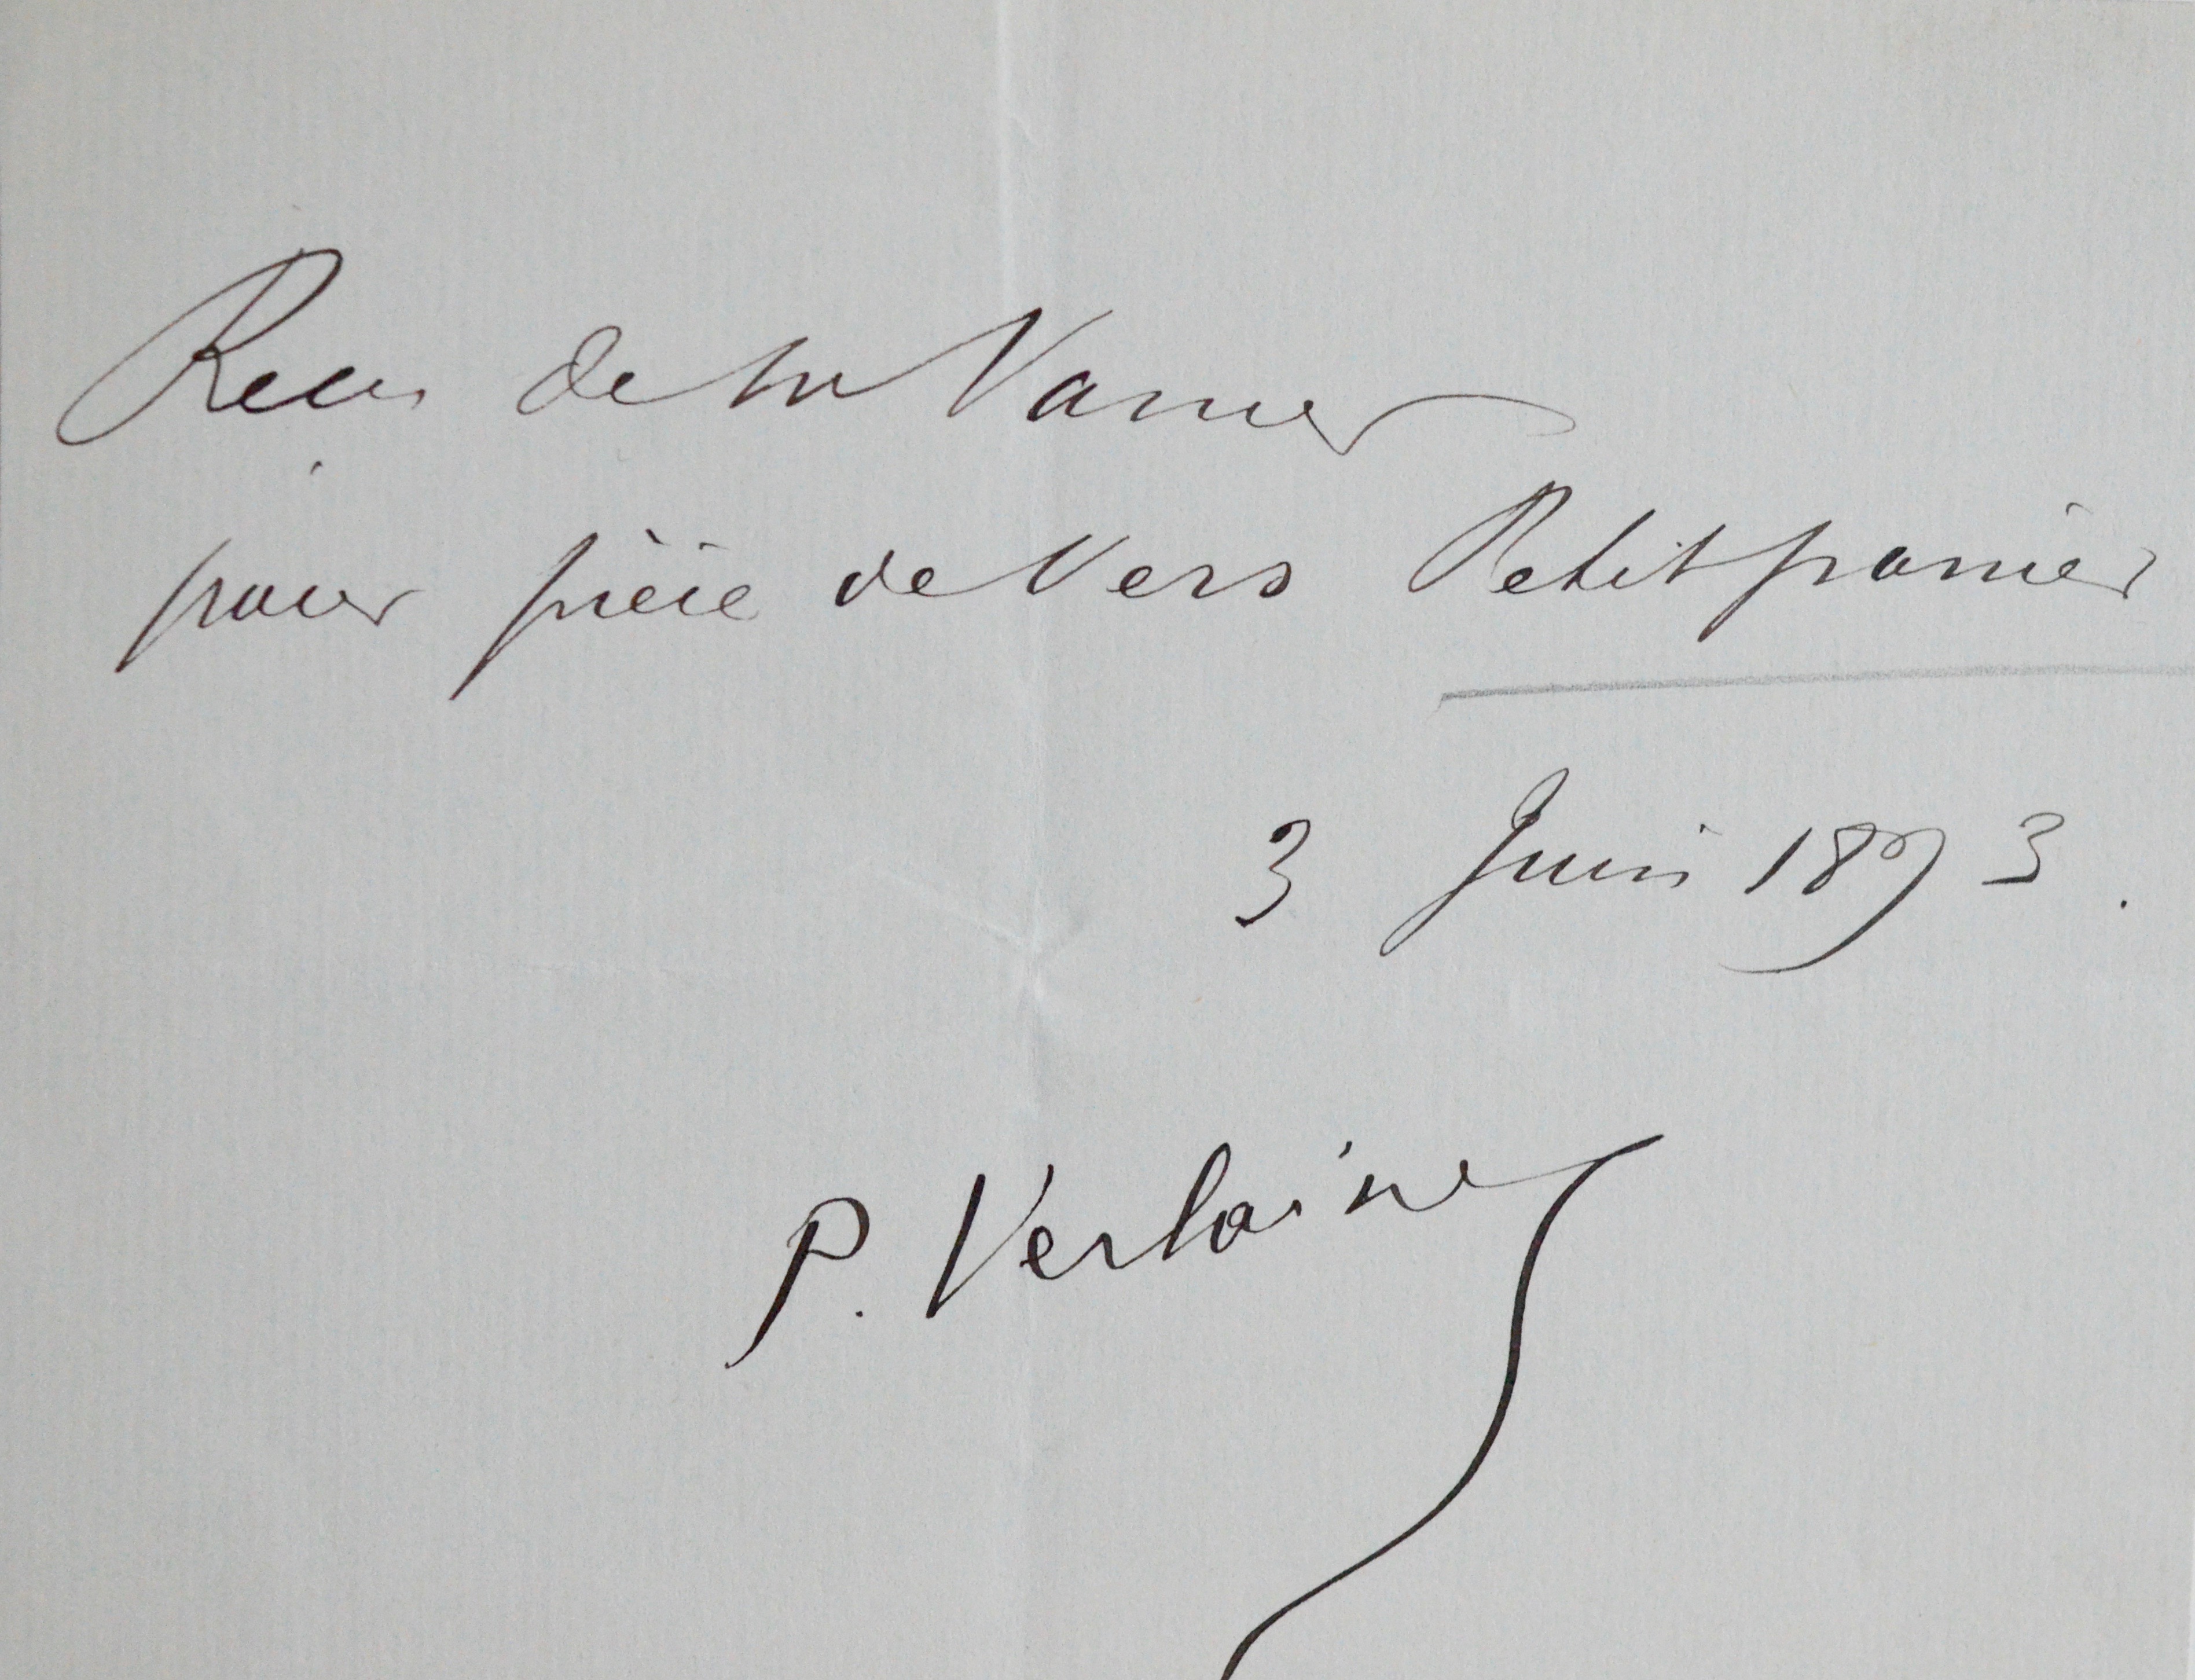 Reçu de Mr Vanier
pour pièce de vers Petit panier
3 Juin 1893.
P. Verlaine